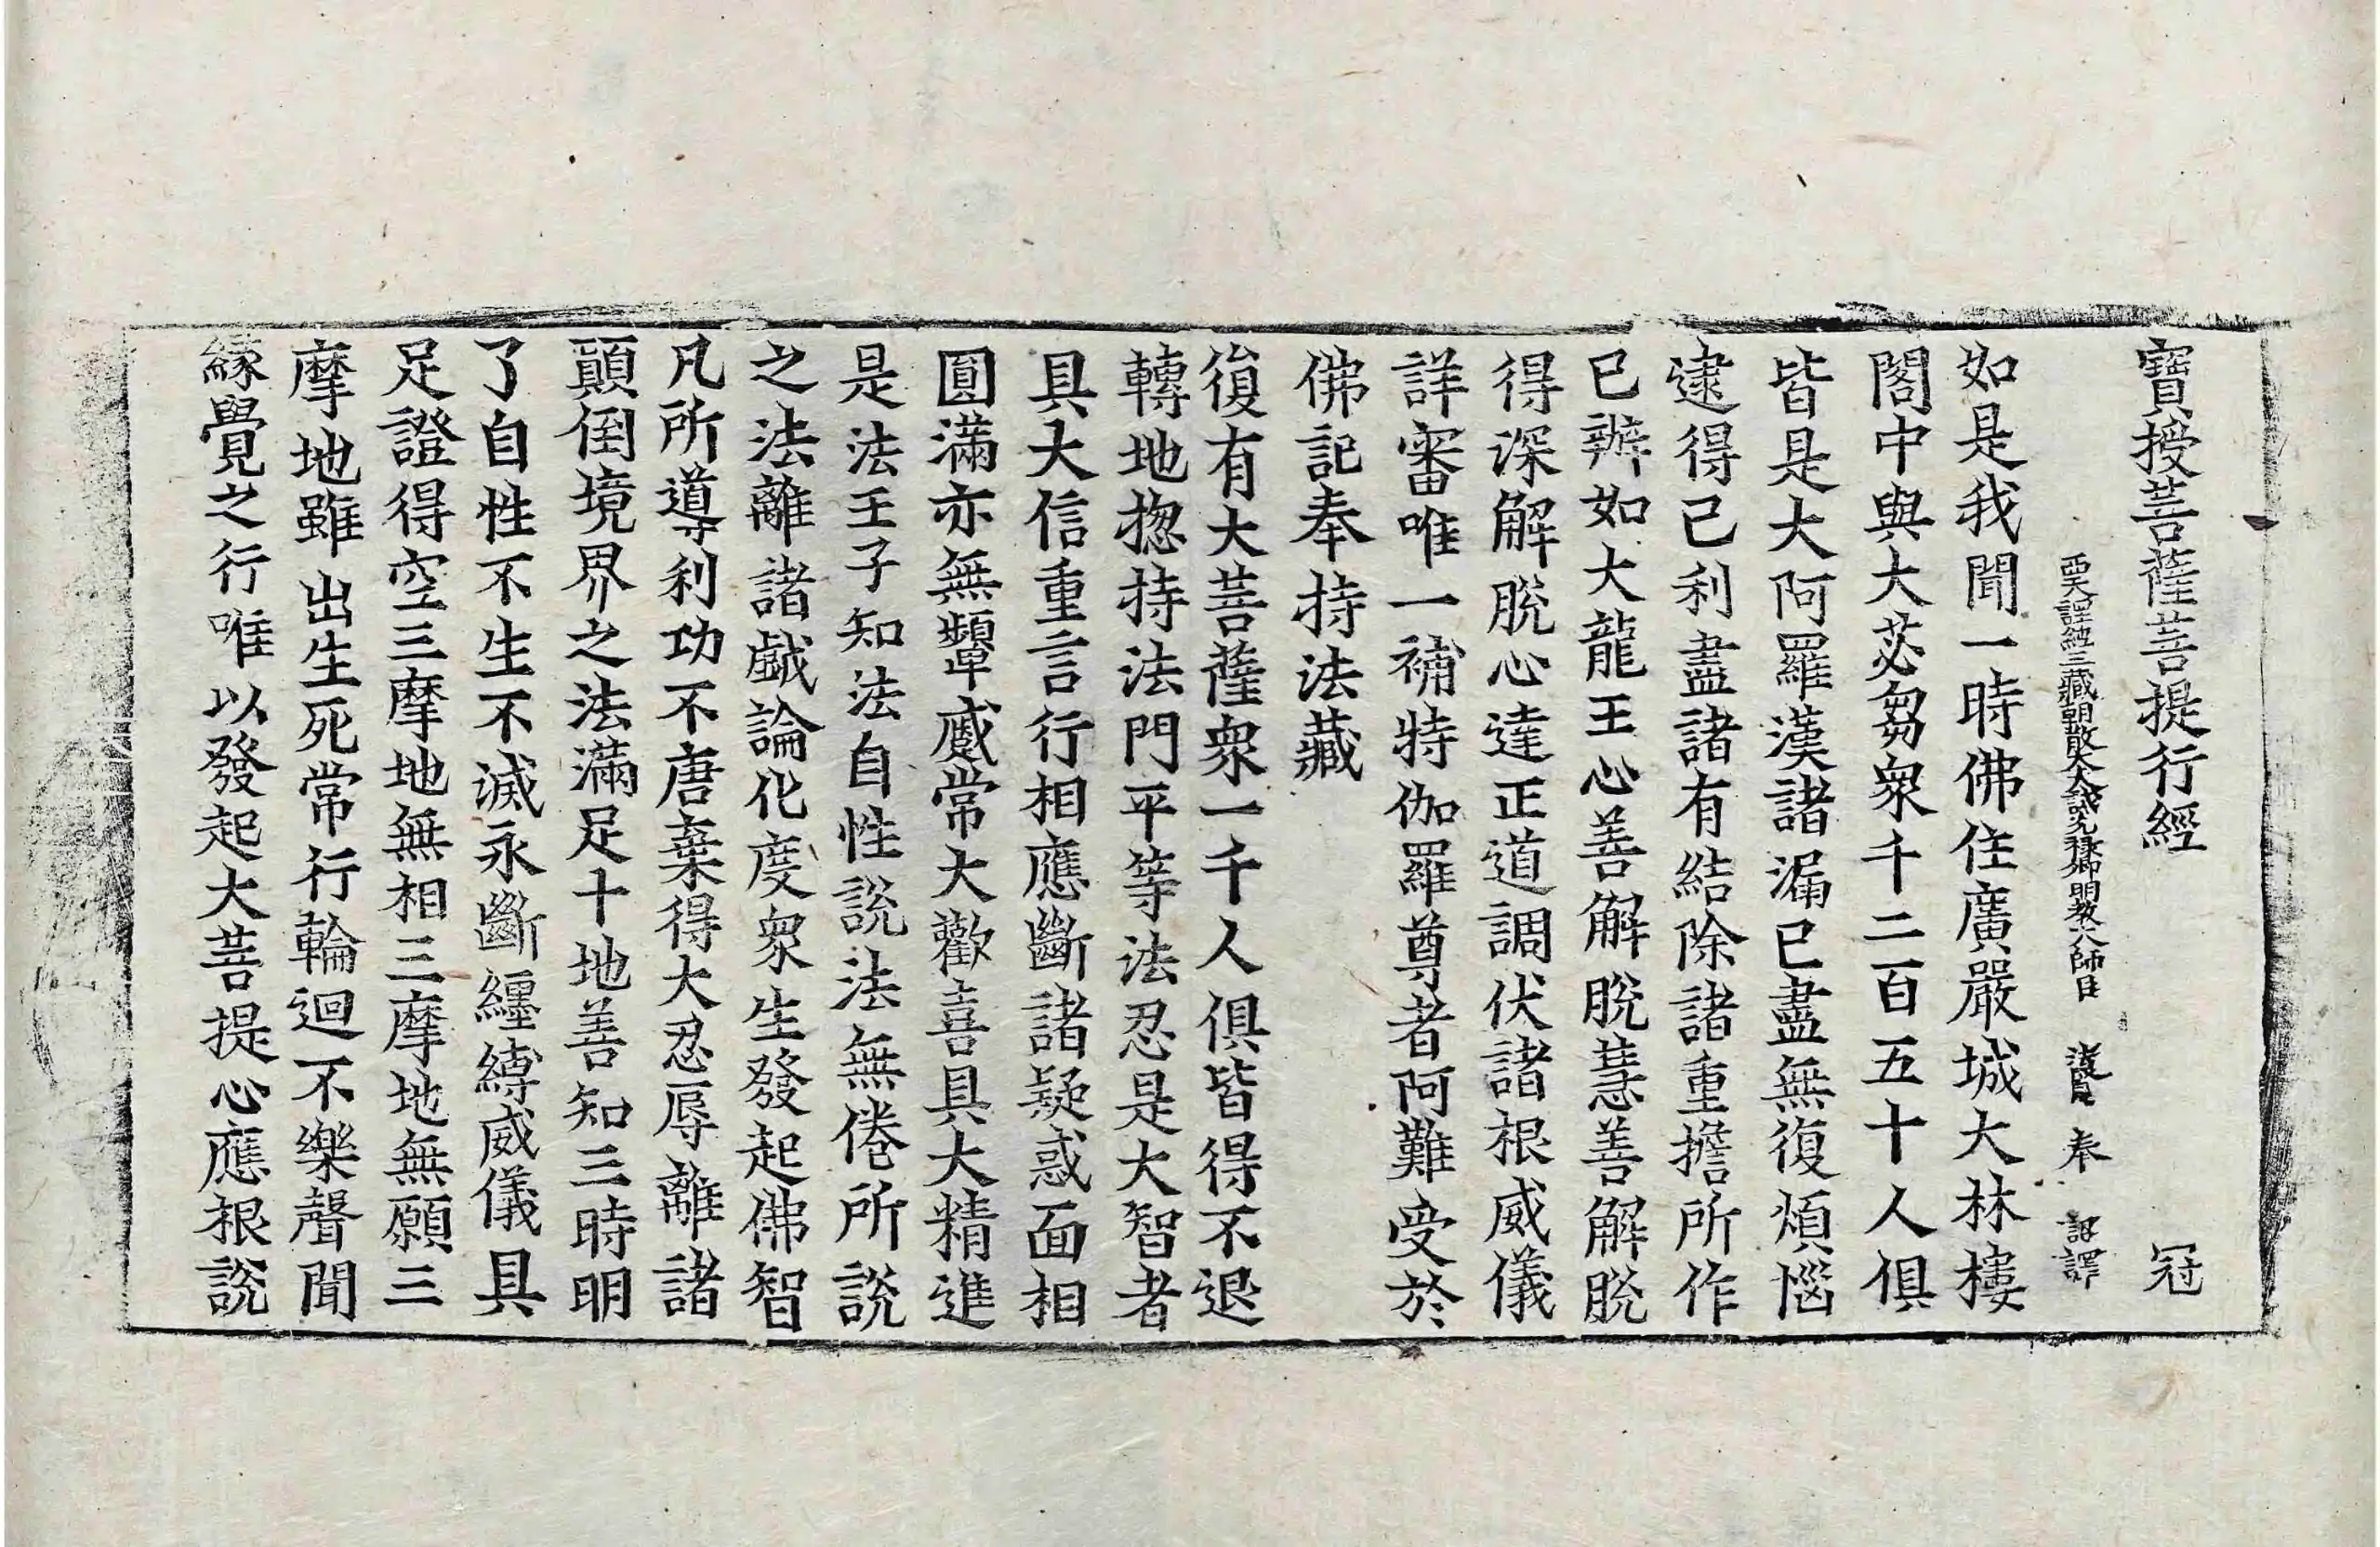 寶授菩薩菩提行經 冠
西天譯經三藏朝散大夫試光祿卿明教大師臣 法賢 奉 詔譯
如是我聞一時佛住廣嚴城大林樓
閣中與大苾芻衆千二百五十人俱
皆是大阿羅漢諸漏已盡無復煩惱
逮得己利盡諸有結除諸重擔所作
已辦如大龍王心善解脫慧善解脫
得深解脫心達正道調伏諸根威儀
詳審唯一補特伽羅尊者阿難受於
佛記奉持法藏
復有大菩薩衆一千人俱皆得不退
轉地揔持法門平等法忍是大智者
具大信重言行相應斷諸疑惑面相
圓滿亦無顰慼常大歡喜具大精進
是法王子知法自性說法無倦所說
之法離諸戲論化度衆生發起佛智
凡所導利功不唐棄得大忍辱離諸
顚倒境界之法滿足十地善知三時明
了自性不生不滅永斷纏縛威儀具
足證得空三摩地無相三摩地無願三
摩地雖出生死常行輪迴不樂聲聞
緣覺之行唯以發起大菩提心應根說